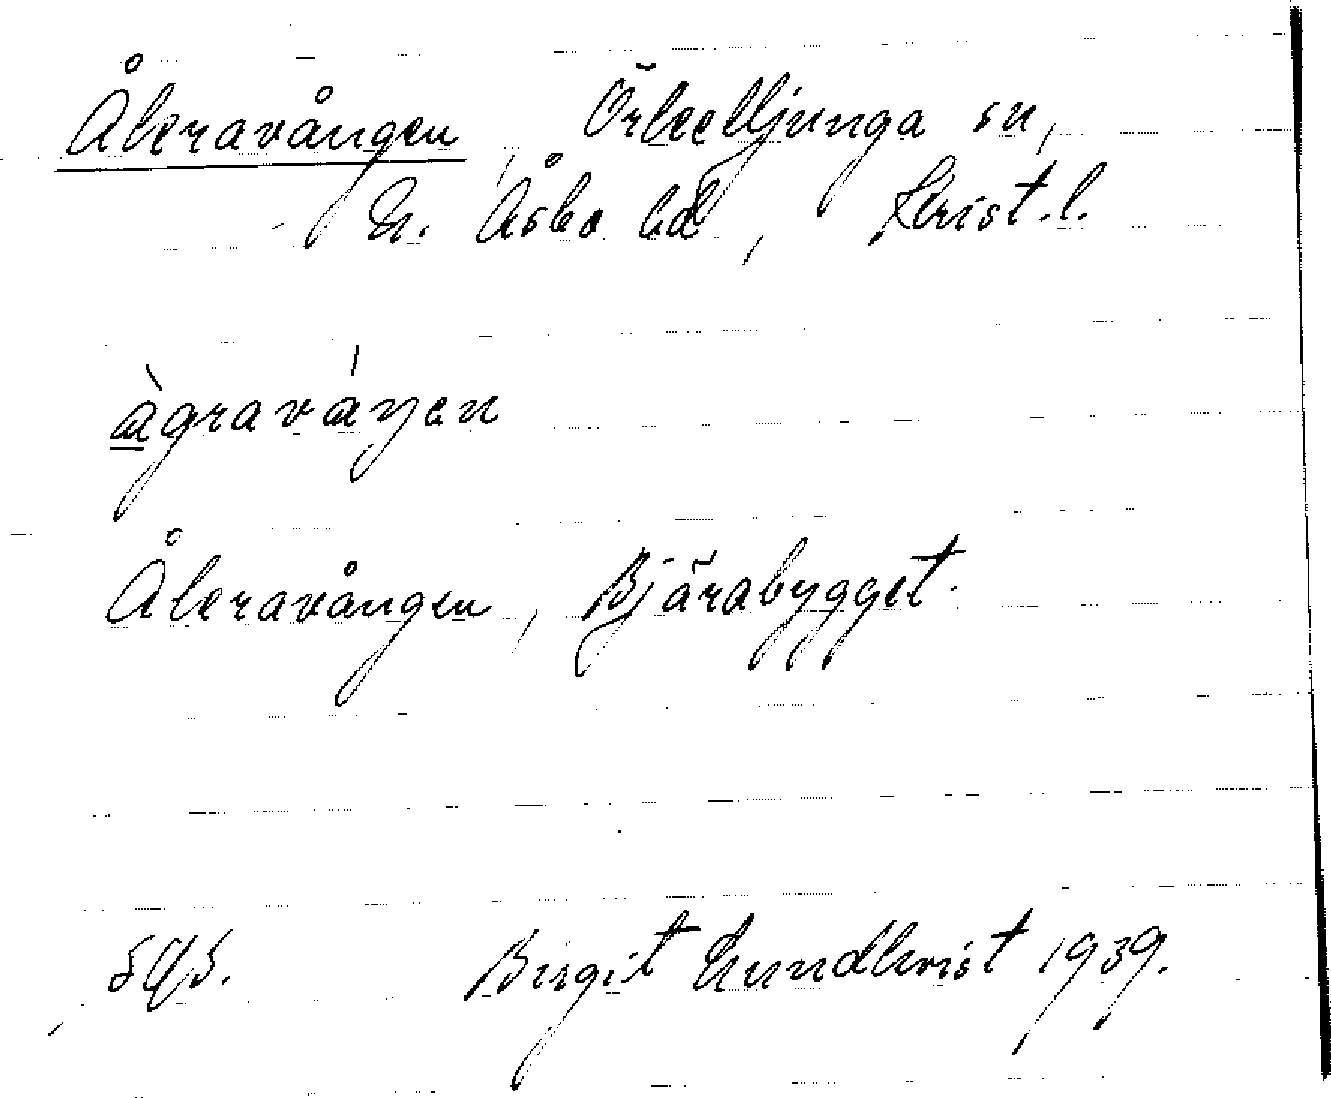 Åkravången, Örkelljunga sn,
N. Åsbo hd, Krist. l.
àgraváŋen
Åkravången, Bjärabygget.
Birgit Lundkvist 1939.